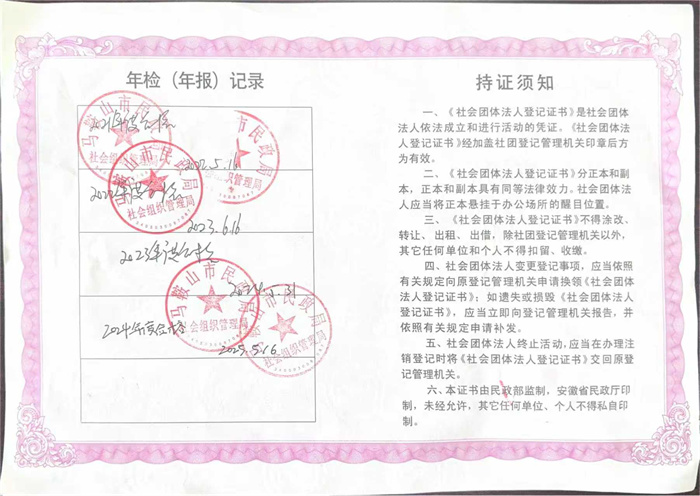 年检（年报）记录
2021年度合格
2022.5.16
2022年度合格
2023.6.16
2023年度合格
2024.5.31
2024年度合格
2025.5.16
马鞍山市民政局
社会组织管理局
马鞍山市民政局
社会组织管理局
马鞍山市民政局
社会组织管理局
持证须知
一、《社会团体法人登记证书》是社会团体
法人依法成立和进行活动的凭证。《社会团体法
人登记证书》经加盖社团登记管理机关印章后方
为有效。
二、《社会团体法人登记证书》分正本和副
本，正本和副本具有同等法律效力。社会团体法
人应当将正本悬挂于办公场所的醒目位置。
三、《社会团体法人登记证书》不得涂改、
转让、出租、出借，除社团登记管理机关以外，
其它任何单位和个人不得扣留、收缴。
四、社会团体法人变更登记事项，应当依照
有关规定向原登记管理机关申请换领《社会团体
法人登记证书》；如遗失或损毁《社会团体法人
登记证书》，应当立即向登记管理机关报告，并
依照有关规定申请补发。
五、社会团体法人终止活动，应当在办理注
销登记时将《社会团体法人登记证书》交回原登
记管理机关。
六、本证书由民政部监制，安徽省民政厅印
制，未经允许，其它任何单位、个人不得私自印
制。